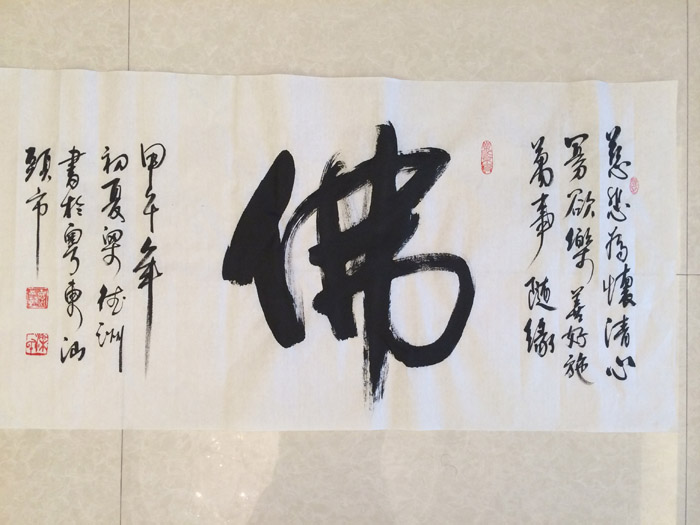 慈悲為懷清心
寡欲樂善好施
萬事隨緣
佛
甲午年
初夏梁德洲
書於粵東汕
頭市